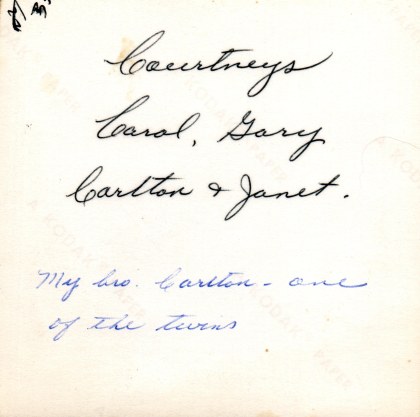 Courtneys
Carol, Gary
Carlton & Janet.
My bro. Carlton - one
of the twins
A KODAK PAPER